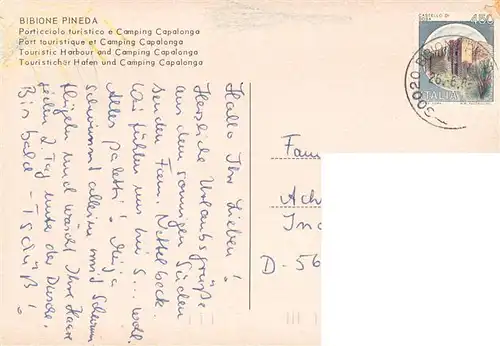 BIBIONE PINEDA
Porticciolo turistico e Camping Capalonga
Port touristique et Camping Capalonga
Touristic Harbour and Camping Capalonga
Touristicher Hafen und Camping Capalonga
CASTELLO DI
450
ITALIA
30020 BIBIONE
Hallo Ihr Lieben!
Herzliche Urlaubsgrüße
aus dem sonnigen Süden
senden Fam. Nettelbeck.
Wir fühlen uns hier s... wohl.
Alles paletti!
schwimmt allein mit Schwimm
flügeln und wäscht Ihre Haare
jeden 2 Tag unter der Dusche.
Bis bald - Tschüß!
Fam
Ach
Ind
D-56